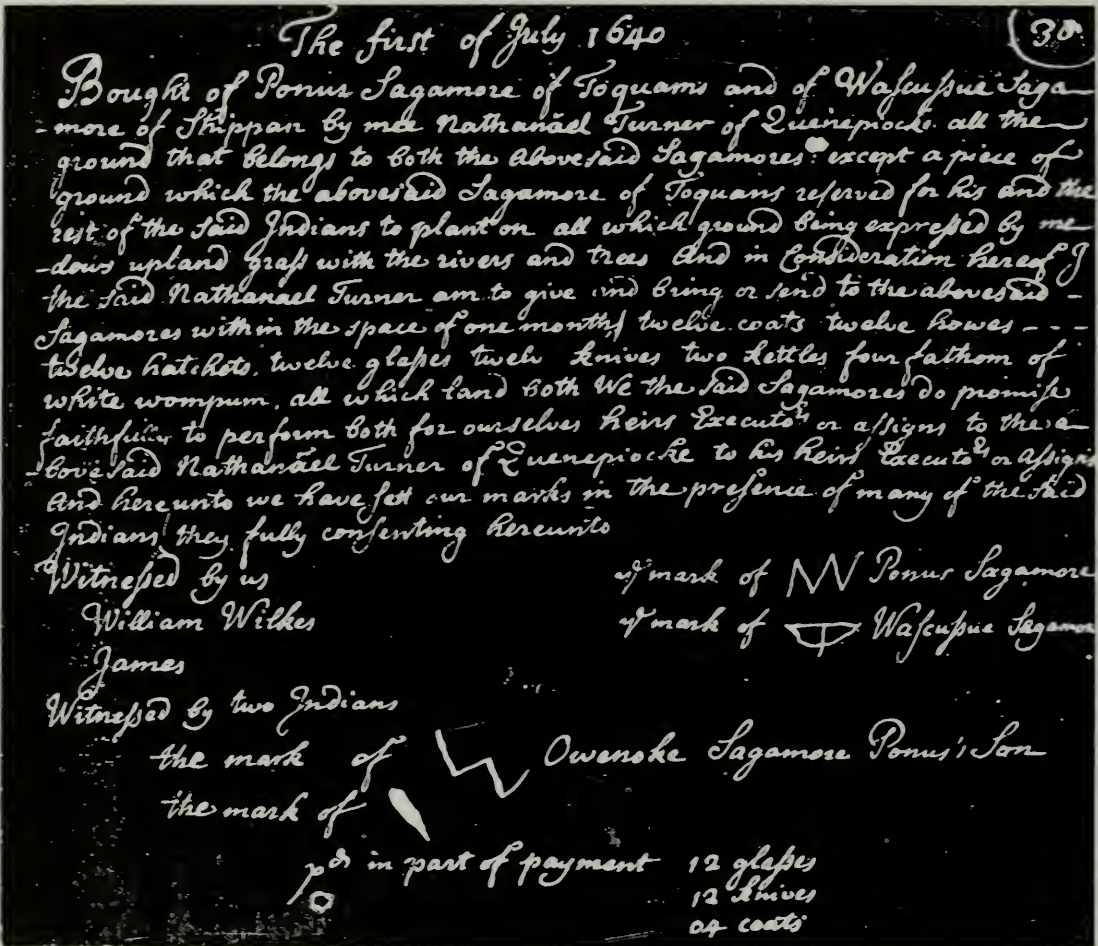 The first of July 1640
38
Bought of Ponus Sagamore of Toquams and of Wascussue Saga-
-more of Shippan by mee Nathanäel Turner of Quenepiocke all the
ground that belongs to both the abovesaid Sagamores except a piece of
ground which the abovesaid Sagamore of Toquans reserved for his and the
rest of the said Indians to plant on all which ground being expressed by me-
-dows upland grass with the rivers and trees And in Consideration hereof I
the said Nathanael Turner am to give and bring or send to the abovesaid -
Sagamores within the space of one month twelve coats twelve howes - - -
twelve hatchets, twelve glasses twelv knives two kettles four fathom of
white wompum, all which land both We the said Sagamores do promise
faithfully to perform both for ourselves heirs Executors or assigns to the a-
-bove said Nathanäel Turner of Quenepiocke to his heirs Executors or Assigns
And hereunto we have sett our marks in the presence of many of the said
Indians they fully consenting hereunto
Witnessed by us
ye mark of Ponus Sagamore
William Wilkes
ye mark of Wascussue Sagamor
James
Witnessed by two Indians
the mark of Owenoke Sagamore Ponus's Son
the mark of
pd in part of payment 12 glasses
12 knives
04 coats